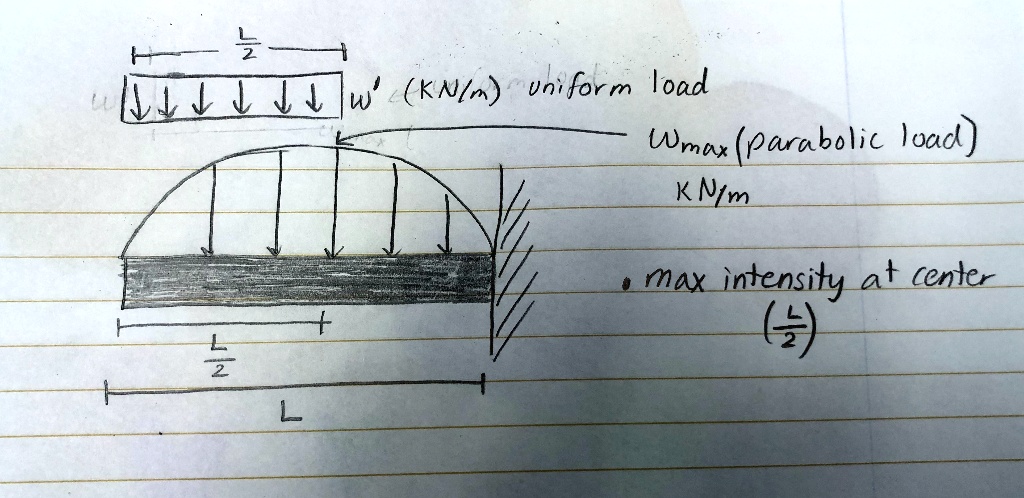 L/2
w' (KN/m) uniform load
Wmax (parabolic load)
KN/m
• max intensity at center
(L/2)
L/2
L